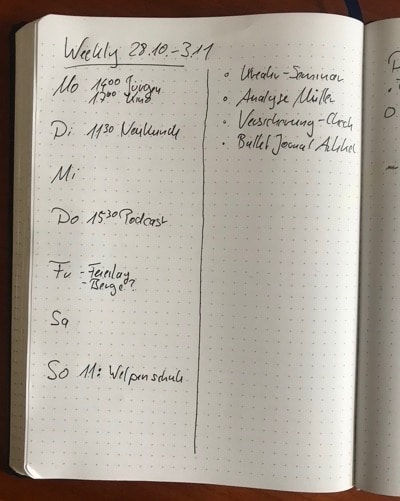 Weekly 28.10.-3.11
Mo 14⁰⁰ Jürgen
17⁰⁰ Kino
Di 11³⁰ Neukunde
Mi
Do 15³⁰ Podcast
Fr - Feiertag
- Berge?
Sa
So 11: Welpenschule
-Seminar
Analyse Müller
Versicherung-Check
Bullet Journal Artikel